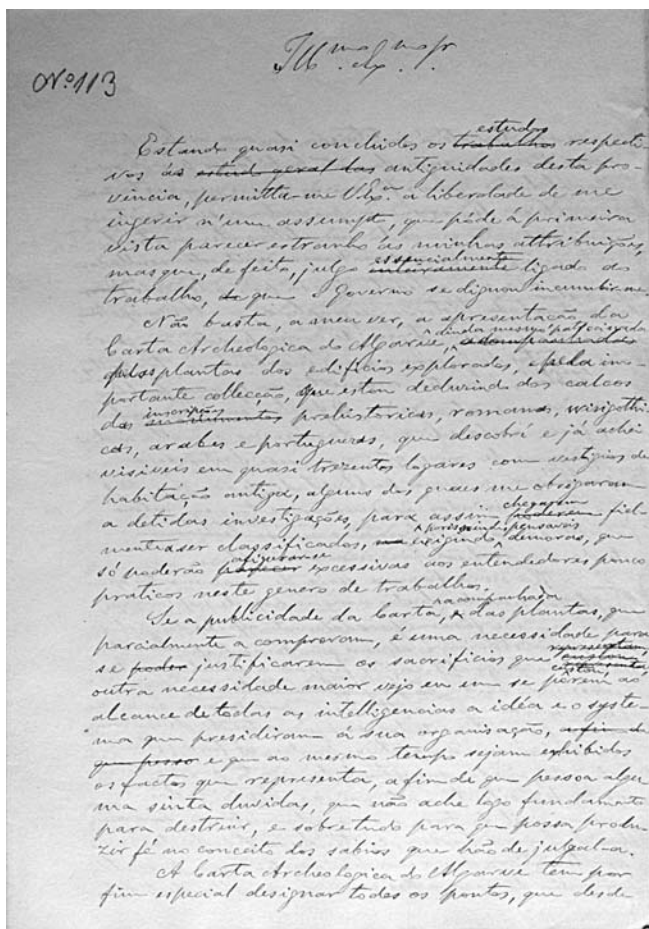 Nº 113
Illmo Exmo Sr.
Estando quasi concluidos os trabalhos estudos respecti-
vos ás estud geral das antiguidades desta pro-
vincia, permitta-me V. Exª a liberdade de me
ingerir n'um assumpto, que póde á primeira
vista parecer estranho ás minhas attribuições,
mas que, de feito, julgo inteiramente essencialmente ligado ao
trabalho, de que o Governo se dignou incumbir-me.
Não basta, a meu ver, a apresentação da
Carta Archeologica do Algarve, ainda mesmo acompanhada
pelas plantas dos edificios explorados, e pela im-
portante collecção, que estou deduzindo dos calcos
das inscripções prehistoricas, romanas, wisigothi-
cas, arabes e portuguezas, que descobri e já achei
visiveis em quasi trezentos logares com vestigios de
habitação antiga, alguns dos quaes me obrigaram
a detidas investigações, para assim poderem chegarem fiel-
mente a ser classificados, exigindo demoras, que
só poderão parecer afigurar-se excessivas aos entendedores pouco
praticos neste genero de trabalhos.
Se a publicidade da Carta, acompanhada das plantas, que
parcialmente a comprovam, é uma necessidade para
se poder justificarem os sacrificios que representam,
outra necessidade maior vejo eu em se pôrem ao
alcance de todas as intelligencias a idéa e o syste-
ma que presidiram á sua organisação, a fim de
que possa e que ao mesmo tempo sejam exhibidos
os factos que representa, a fim de que pessoa algu-
ma sinta duvidas, que não ache logo fundamento
para destruir, e sobretudo para que possa produ-
zir fé no conceito dos sabios que hão de julgal-a.
A Carta Archeologica do Algarve tem por
fim especial designar todos os pontos, que desde